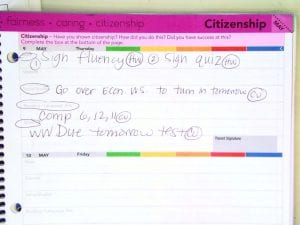 fairness • caring • citizenship
Citizenship
Citizenship – Have you shown citizenship? How did you do this? Did you have success at this?
Complete the box at the bottom of the page.
9 MAY Thursday
① Sign fluency HW ② Sign quiz HW
Go over Econ. W.S. to turn in tomorrow CW
Comp 6, 12, 11 CW
WW Due tomorrow test CW
Parent Signature
10 MAY Friday